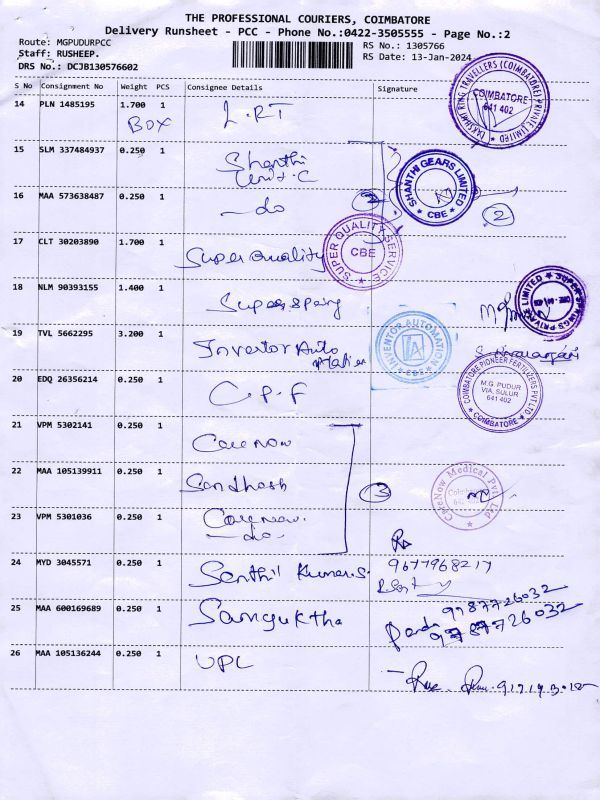 THE PROFESSIONAL COURIERS, COIMBATORE
Delivery Runsheet - PCC - Phone No.:0422-3505555 - Page No.:2
Route: MGPUDURPCC
Staff: RUSHEEP.
DRS No.: DCJB130576602
RS No.: 1305766
RS Date: 13-Jan-2024
S No Consignment No Weight PCS Consignee Details Signature
14 PLN 1485195 1.700 1 L.RT
BOX
LAKSHMI RING TRAVELLERS (COIMBATORE) PRIVATE LIMITED
COIMBATORE
641 402
15 SLM 337484937 0.250 1 Shanthi
Unit-C
SHANTHI GEARS LIMITED
CBE
16 MAA 573638487 0.250 1 do
2
2
17 CLT 30203890 1.700 1 Super Quality
SUPER QUALITY SERVICE
CBE
18 NLM 90393155 1.400 1 Super Spring
SUPER SPRINGS PRIVATE LIMITED
19 TVL 5662295 3.200 1 Inventor Auto
mation
INVENTOR AUTOMATION
CBE
20 EDQ 26356214 0.250 1 C.P.F
COIMBATORE PIONEER FERTILIZERS PVT LTD
M.G. PUDUR
VIA. SULUR
641 402
COIMBATORE
21 VPM 5302141 0.250 1 Care now
22 MAA 105139911 0.250 1 Sandhosh
3
CareNow Medical Pvt. Ltd
23 VPM 5301036 0.250 1 Care now.
do
24 MYD 3045571 0.250 1 Senthil Kumar.S.
9677968217
25 MAA 600169689 0.250 1 Sanguktha
9787726032
9787726032
26 MAA 105136244 0.250 1 UPL